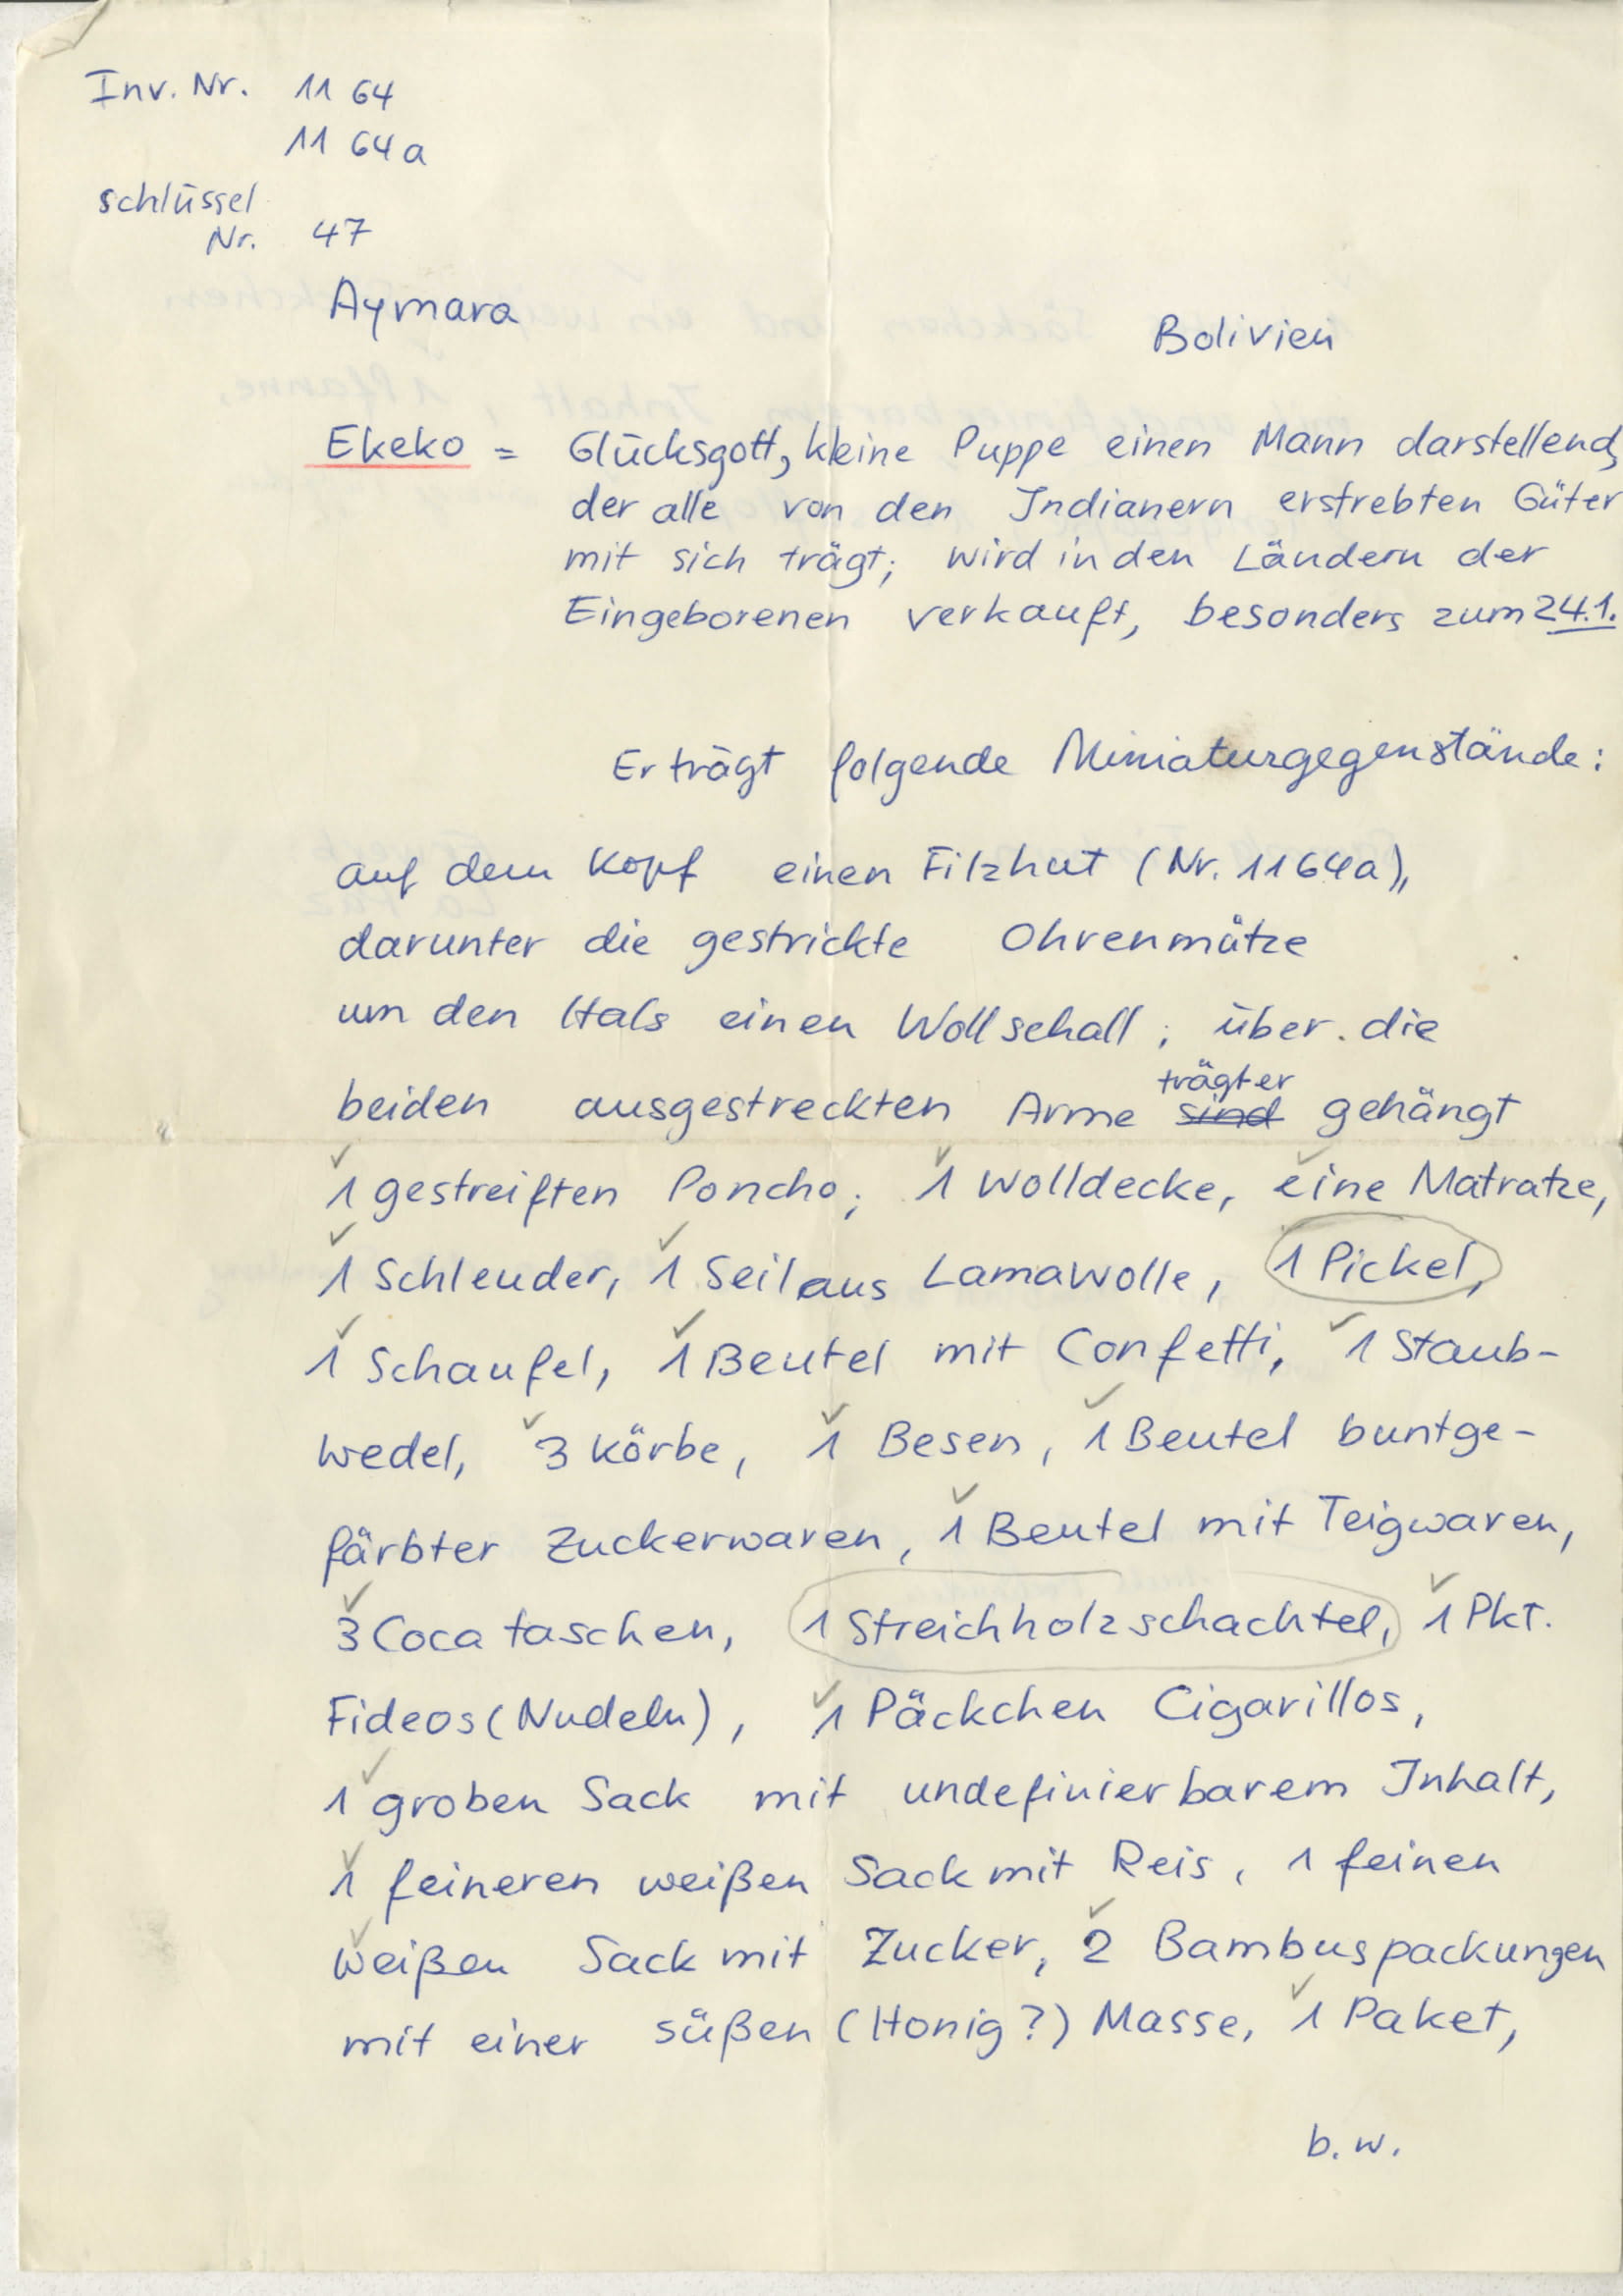 Inv. Nr. 11 64
11 64 a
Schlüssel
Nr. 47
Aymara
Bolivien
Ekeko = Glücksgott, kleine Puppe einen Mann darstellend,
der alle von den Indianern erstrebten Güter
mit sich trägt; wird in den Ländern der
Eingeborenen verkauft, besonders zum 24.1.
Er trägt folgende Miniaturgegenstände:
auf dem Kopf einen Filzhut (Nr. 1164a),
darunter die gestrickte Ohrenmütze
um den Hals einen Wollschall; über die
trägt er
beiden ausgestreckten Arme sind gehängt
1 gestreiften Poncho; 1 Wolldecke, eine Matratze,
1 Schleuder, 1 Seil aus Lamawolle, 1 Pickel,
1 Schaufel, 1 Beutel mit Confetti, 1 Staub-
wedel, 3 Körbe, 1 Besen, 1 Beutel buntge-
färbter Zuckerwaren, 1 Beutel mit Teigwaren,
3 Coca taschen, 1 Streichholzschachtel, 1 Pkt.
Fideos (Nudeln), 1 Päckchen Cigarillos,
1 groben Sack mit undefinierbarem Inhalt,
1 feineren weißen Sack mit Reis, 1 feinen
weißen Sack mit Zucker, 2 Bambuspackungen
mit einer süßen (Honig?) Masse, 1 Paket,
b. w.